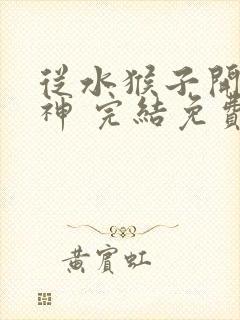 從水猴子開
神 完結免費
黃賓虹